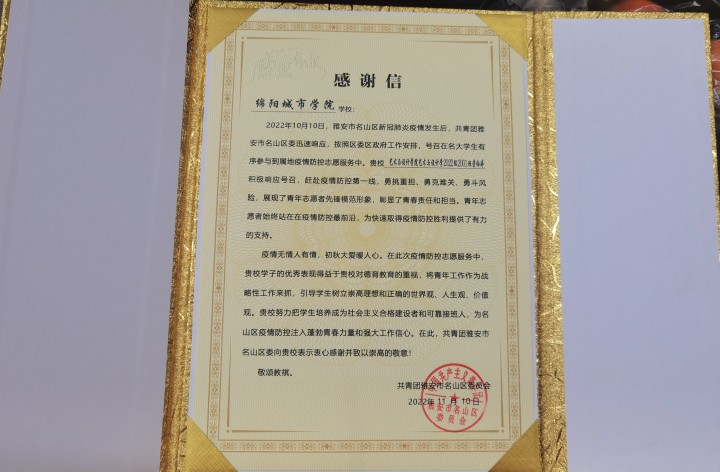 感谢信
绵阳城市学院 学校：
2022年10月10日，雅安市名山区新冠肺炎疫情发生后，共青团雅
安市名山区委迅速响应，按照区委区政府工作安排，号召在名大学生有
序参与到属地疫情防控志愿服务中。贵校 艺术与设计学院艺术与设计学2022级2001班
积极响应号召，赶赴疫情防控第一线，勇挑重担、勇克难关、勇斗风
险，展现了青年志愿者先锋模范形象，彰显了青春责任和担当。青年志
愿者始终站在在疫情防控最前沿，为快速取得疫情防控胜利提供了有力
的支持。
疫情无情人有情，初秋大爱暖人心。在此次疫情防控志愿服务中，
贵校学子的优秀表现得益于贵校对德育教育的重视，将青年工作作为战
略性工作来抓，引导学生树立崇高理想和正确的世界观、人生观、价值
观。贵校努力把学生培养成为社会主义合格建设者和可靠接班人，为名
山区疫情防控注入蓬勃青春力量和强大工作信心。在此，共青团雅安市
名山区委向贵校表示衷心感谢并致以崇高的敬意！
敬颂教祺。
共青团雅安市名山区委员会
2022年 11 月 10 日